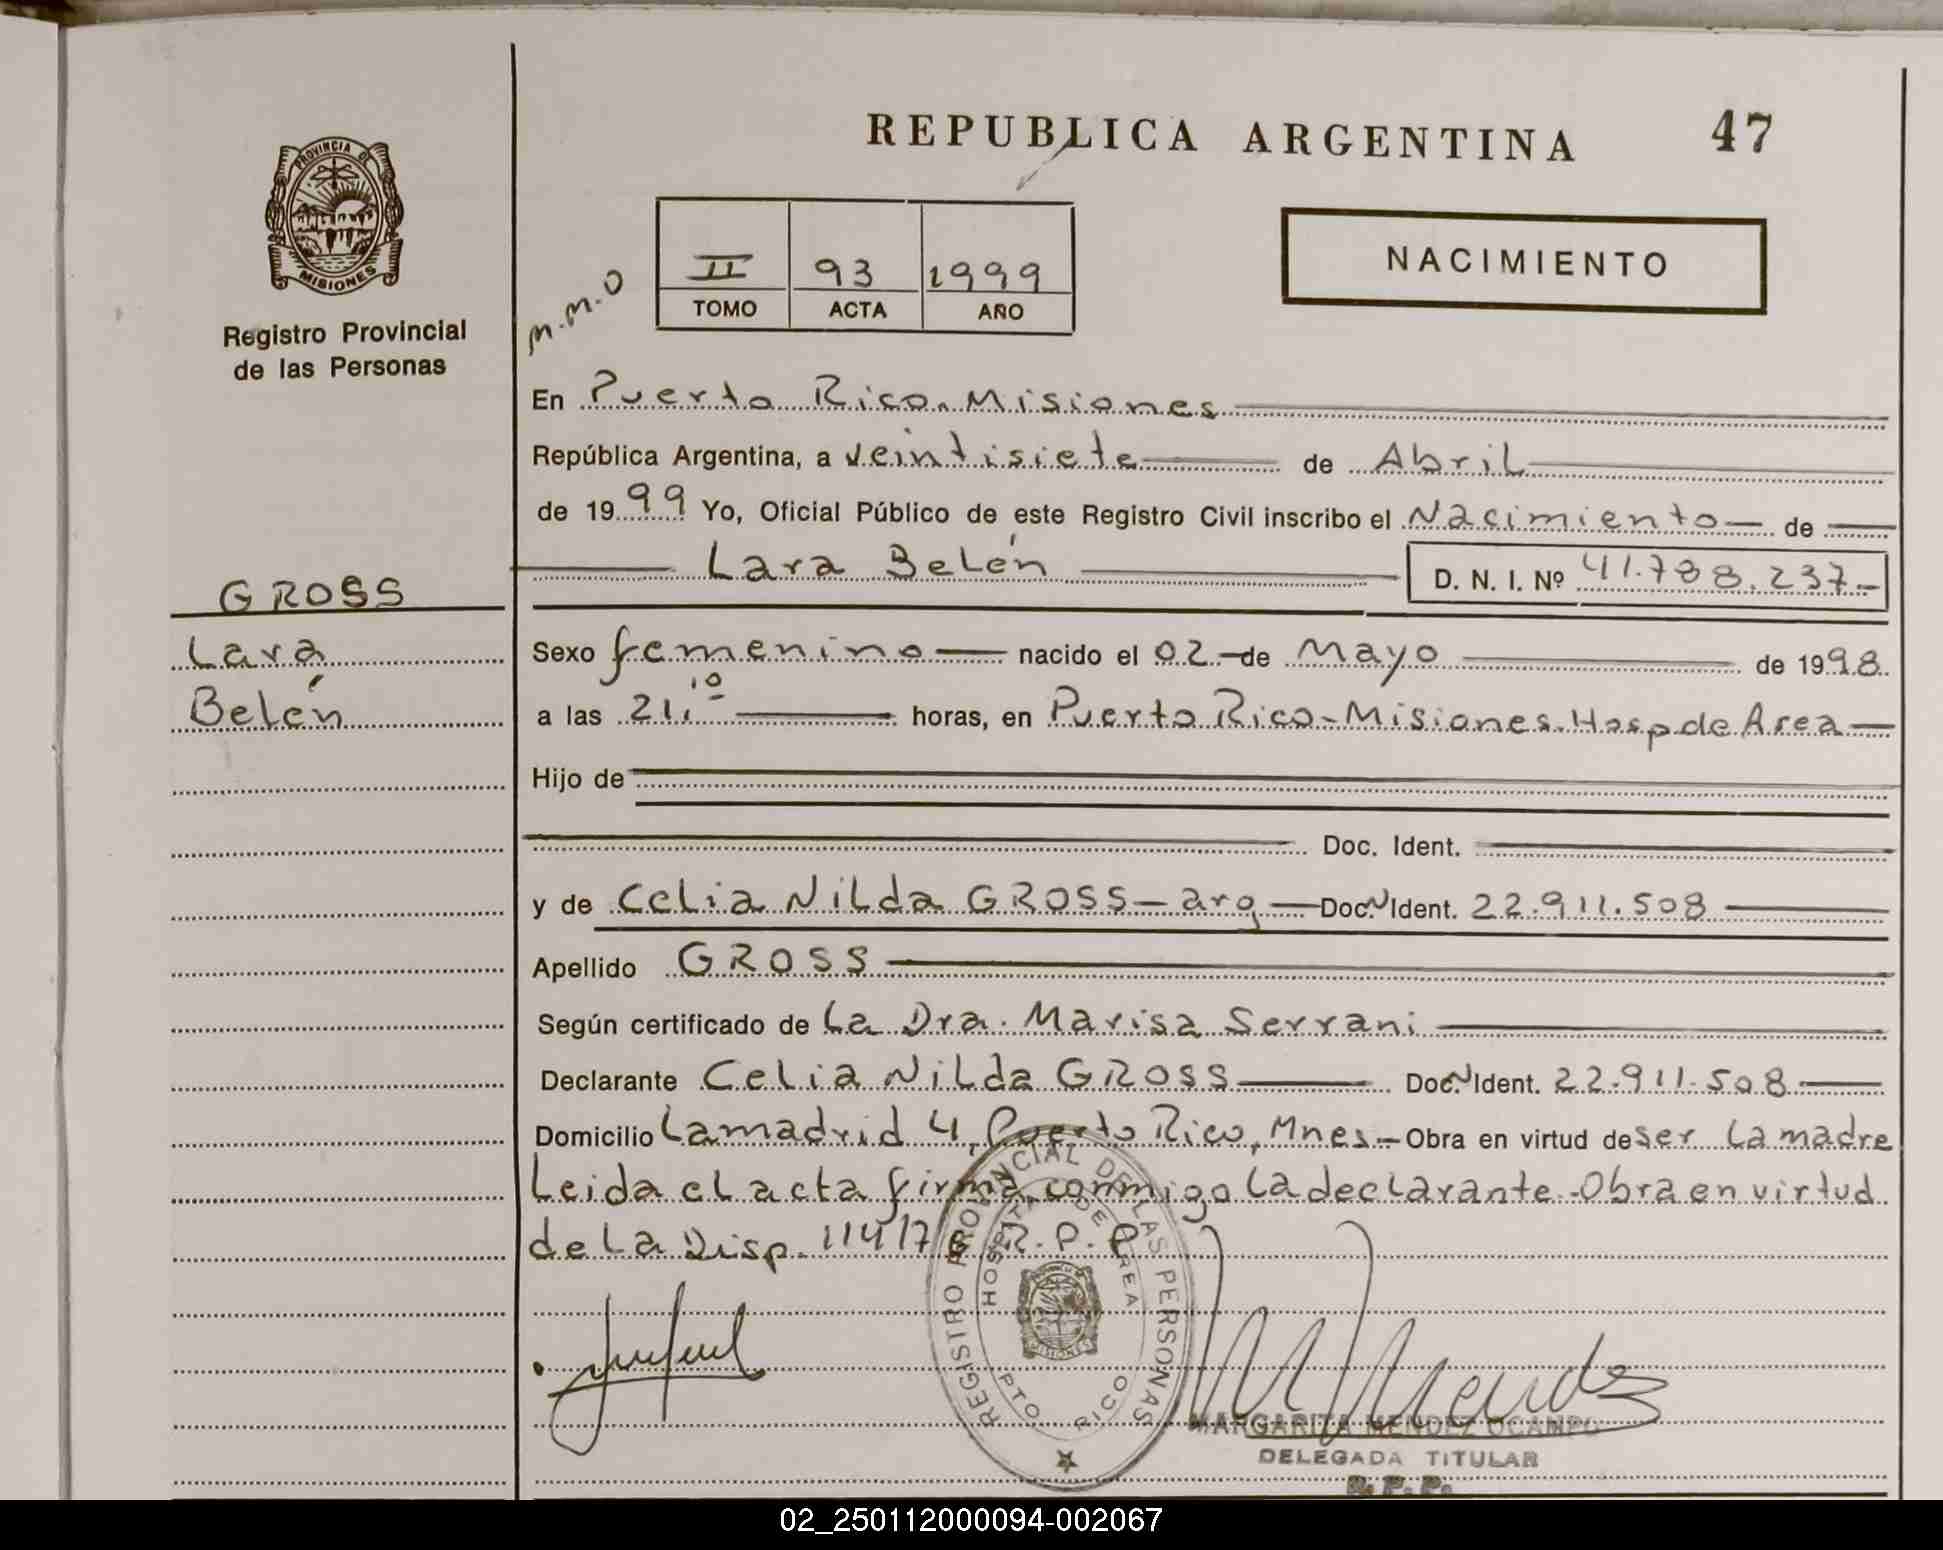 REPUBLICA ARGENTINA 47
PROVINCIA DE
MISIONES
Registro Provincial
de las Personas
II 93 1999
TOMO ACTA AÑO
NACIMIENTO
m.m.o
En Puerto Rico. Misiones
República Argentina, a veintisiete de Abril
de 1999 Yo, Oficial Público de este Registro Civil inscribo el Nacimiento de
Lara Belén D. N. I. Nº 41.788.237.-
GROSS
Lara
Belén
Sexo femenino nacido el 02 de Mayo de 1998
a las 21,10 horas, en Puerto Rico-Misiones. Hosp de Area
Hijo de
Doc. Ident.
y de Celia Nilda GROSS - arg - Doc. Ident. 22.911.508
Apellido GROSS
Según certificado de La Dra. Marisa Serrani
Declarante Celia Nilda GROSS Doc. Ident. 22.911.508
Domicilio Lamadrid 4, Puerto Rico, Mnes.- Obra en virtud de ser La madre
Leida el acta firma conmigo La declarante.-Obra en virtud
de La Disp. 114/78 R.P.P
REGISTRO PROVINCIAL DE LAS PERSONAS
HOSPITAL DE AREA
PTO RICO
MISIONES
M Mendez
MARGARITA MENDEZ OCAMPO
DELEGADA TITULAR
R. P. P.
02_250112000094-002067